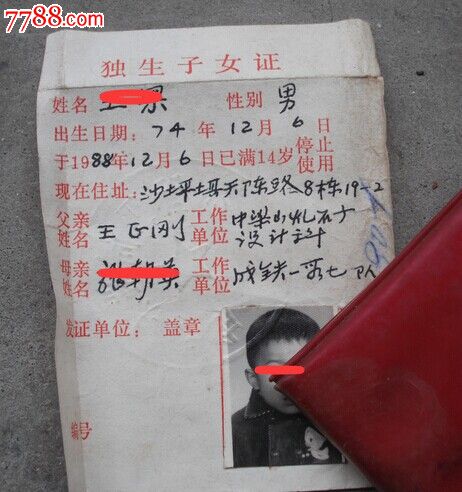 7788.com
独生子女证
姓名 性别 男
出生日期: 74 年 12 月 6 日
于1988年12月6日已满14岁停止使用
现在住址: 沙坪坝天陈路8栋19-2
父亲姓名 王正刚 工作单位 中梁山机石厂设计科
母亲姓名 工作单位 成铁一四七队
发证单位: 盖章
编号